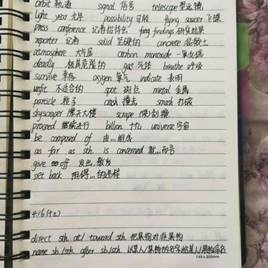 orbit 轨道 signal 信号 telescope 望远镜
light year 光年 possibility 可能 flying saucer 飞碟
press conference 记者招待会 findings 研究结果
reporter 记者 solid 坚硬的 concrete 混凝土
atmosphere 大气层 carbon monoxide 一氧化碳
deadly gas 气体 breathe 呼吸
survive oxygen 氧气 indicate 表明
unfit 不适合的 spot 斑点 metal 金属
particle 粒子 crash 撞击 smash 打破
skyscraper 摩天大楼 scrape
proceed 继续进行 billion 十亿 universe 宇宙
be composed of 由…组成
as far as sth is concerned 就…而言
give off 发出，散发
set back
4/6(+2)
direct sth at/ toward sth 把某物对准某物
name sb/sth after sb/sth 以某人/某物的名字给某人/某物命名